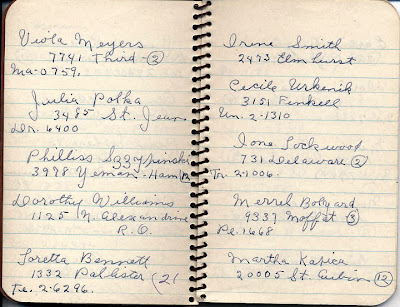 Viola Meyers
7741 Third - (2)
Ma-0759.
Julia Polka
3485 St. Jean
Dr. 6400
Philliss
3978 Yemans - Ham (12)
Dorothy Williams
1125 N. Alexandrine
R.O.
Loretta Bennett
1332 Pallister (2(
Te. 2-6296.
Irene Smith
2473 Elmhurst
Cecile Urkenik
3151 Finkell
Un. 2-1310
Ione Lockwood
731 Delaware (2)
Tr. 2-1006.
Merrel Bolyard
9337 Moffat (3)
Pe. 1668
Martha Kapica
20005 St. Aubin (12)